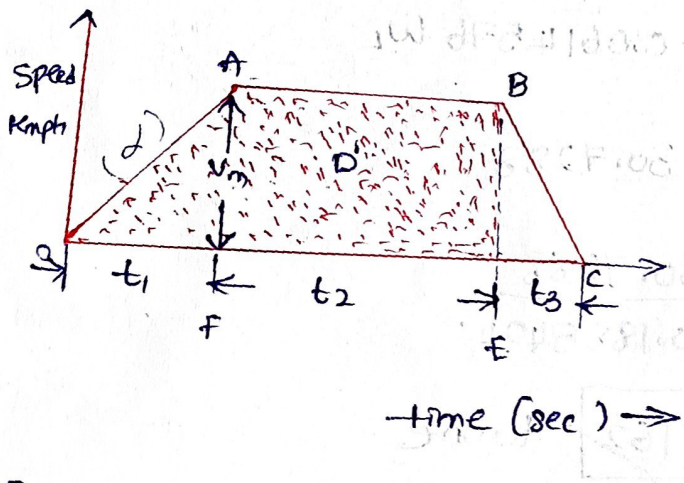 A
B
Speed
Kmph
α
Vm
D'
O
t1
t2
t3
C
F
E
time (sec)